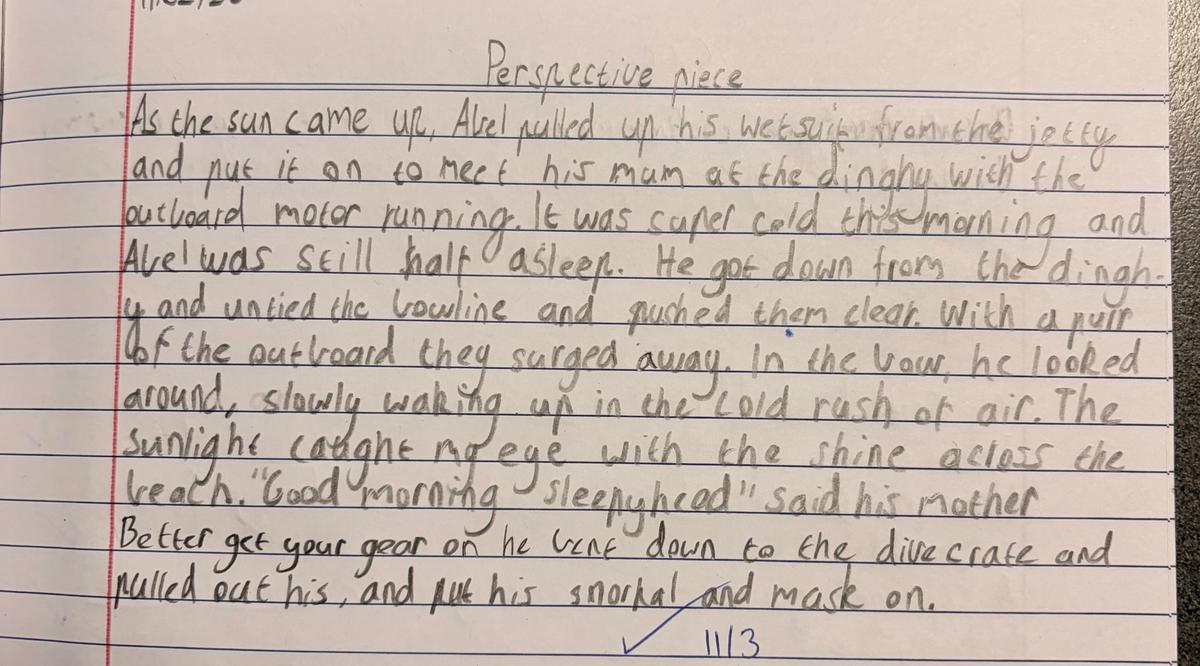 Perspective piece
As the sun came up, Abel pulled up his wetsuit from the jetty
and put it on to meet his mum at the dinghy with the
outboard motor running. It was super cold this morning and
Abel was still half asleep. He got down from the dingh-
y and untied the bowline and pushed them clear. With a purr
of the outboard they surged away. In the bow, he looked
around, slowly waking up in the cold rush of air. The
sunlight caught my eye with the shine across the
beach. "Good morning sleepyhead" said his mother
Better get your gear on he bent down to the dive crate and
pulled out his, and put his snorkal and mask on.
11/3